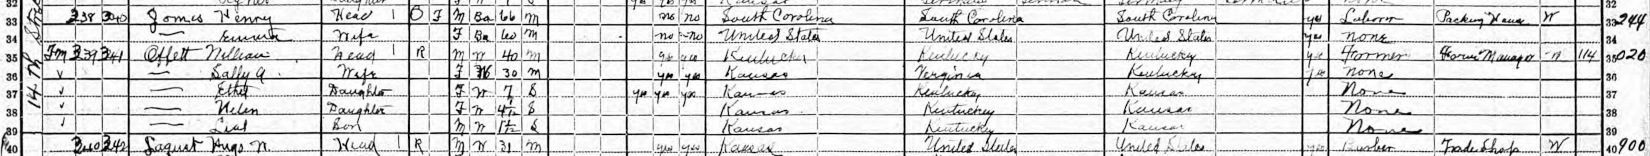 33 238 340 Jones Henry Head 1 O F M 66 M no no South Carolina South Carolina South Carolina yes Laborer Packing House W 33 244
34 — Wife F 60 M no no United States United States United States yes none 34
35 Fm 239 341 Offett William Head 1 R M W 40 M yes yes Kentucky Kentucky Kentucky yes Farmer Farm Manager 114 35 020
36 — Sally A. Wife F W 30 M yes yes Kansas Virginia Kentucky yes none 36
37 — Ethel Daughter F W 7 S yes yes yes Kansas Kentucky Kansas None 37
38 — Helen Daughter F W 4½ S Kansas Kentucky Kansas None 38
39 — Son M W 1½ S Kansas Kentucky Kansas None 39
40 240 342 Hugo N. Head 1 R M W 31 M yes yes Kansas United States United States yes Barber W 40 900
14th